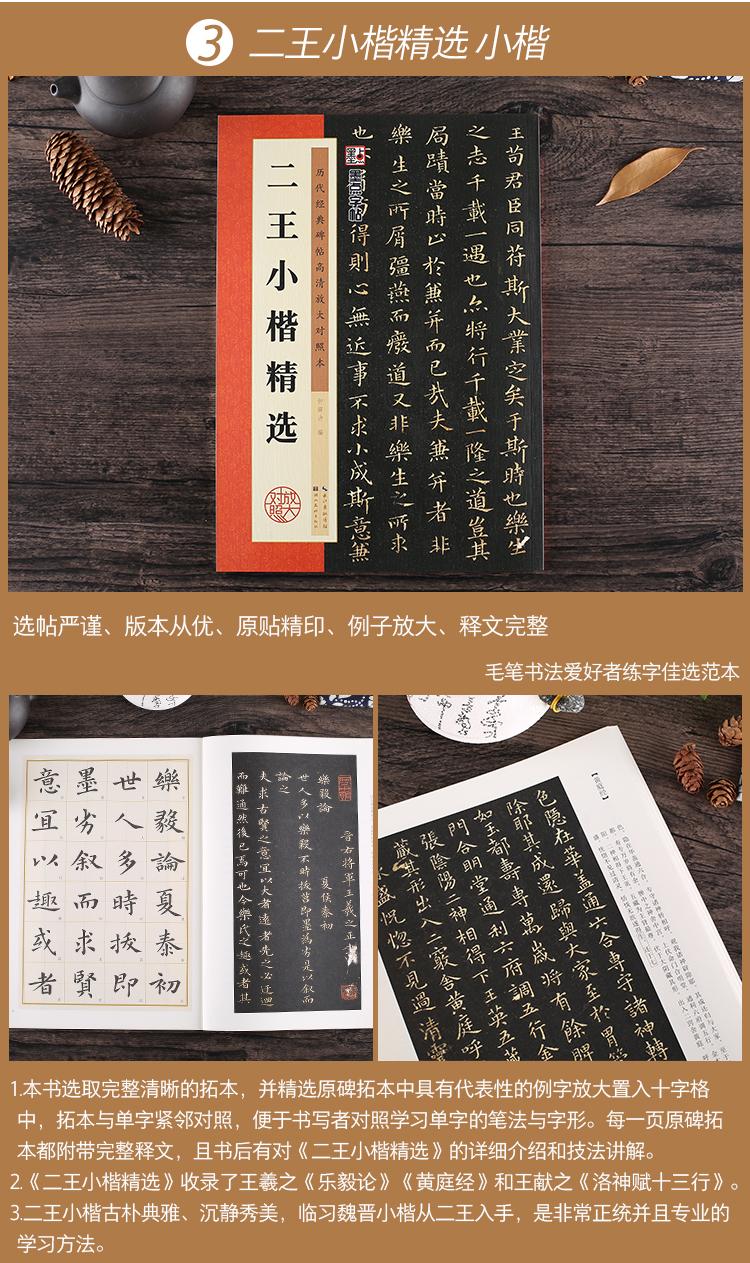 3 二王小楷精选 小楷
二王小楷精选
历代经典碑帖高清放大对照本
放大对照
墨点字帖
王苟君臣同苻斯大業定矣于斯時也樂生
之志千載一遇也亦將行千載一隆之道豈其
局蹟當時止於兼并而已哉夫兼并者非
樂生之所屑彊燕而廢道又非樂生之所求
得則心無近事不求小成斯意兼
选帖严谨、版本从优、原贴精印、例子放大、释文完整
毛笔书法爱好者练字佳选范本
樂毅論夏侯泰初
世人多時拔即
墨劣叙而求賢
意宜以趣或者
樂毅論
晉右將軍王羲之正書
夏侯泰初
世人多以樂毅不時拔莒即墨為劣是以叙而
論之
夫求古賢之意宜以大者遠者先之必迂迴
而難通然後已焉可也今樂氏之趣或者其
【黄庭经】
色隱在華蓋通六合專守諸神轉
除耶其成還歸與大家至於胃管
如王都壽專萬歲將有餘脾
門合明堂通利六府調五行金
張陰陽二神相得下王英五藏
藏其形出入二竅舍黄庭呼
盛怳惚不見過清靈
1.本书选取完整清晰的拓本，并精选原碑拓本中具有代表性的例字放大置入十字格
中，拓本与单字紧邻对照，便于书写者对照学习单字的笔法与字形。每一页原碑拓
本都附带完整释文，且书后有对《二王小楷精选》的详细介绍和技法讲解。
2.《二王小楷精选》收录了王羲之《乐毅论》《黄庭经》和王献之《洛神赋十三行》。
3.二王小楷古朴典雅、沉静秀美，临习魏晋小楷从二王入手，是非常正统并且专业的
学习方法。